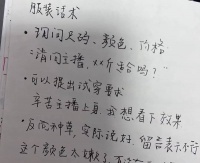 服装话术
·询问尺码、颜色、价格
“请问主播,xx斤适合吗?”
·可以提出试穿要求
辛苦主播上身,我想看下效果
·反面种草,实际说好,留言表示不行
这个颜色太嫩了,